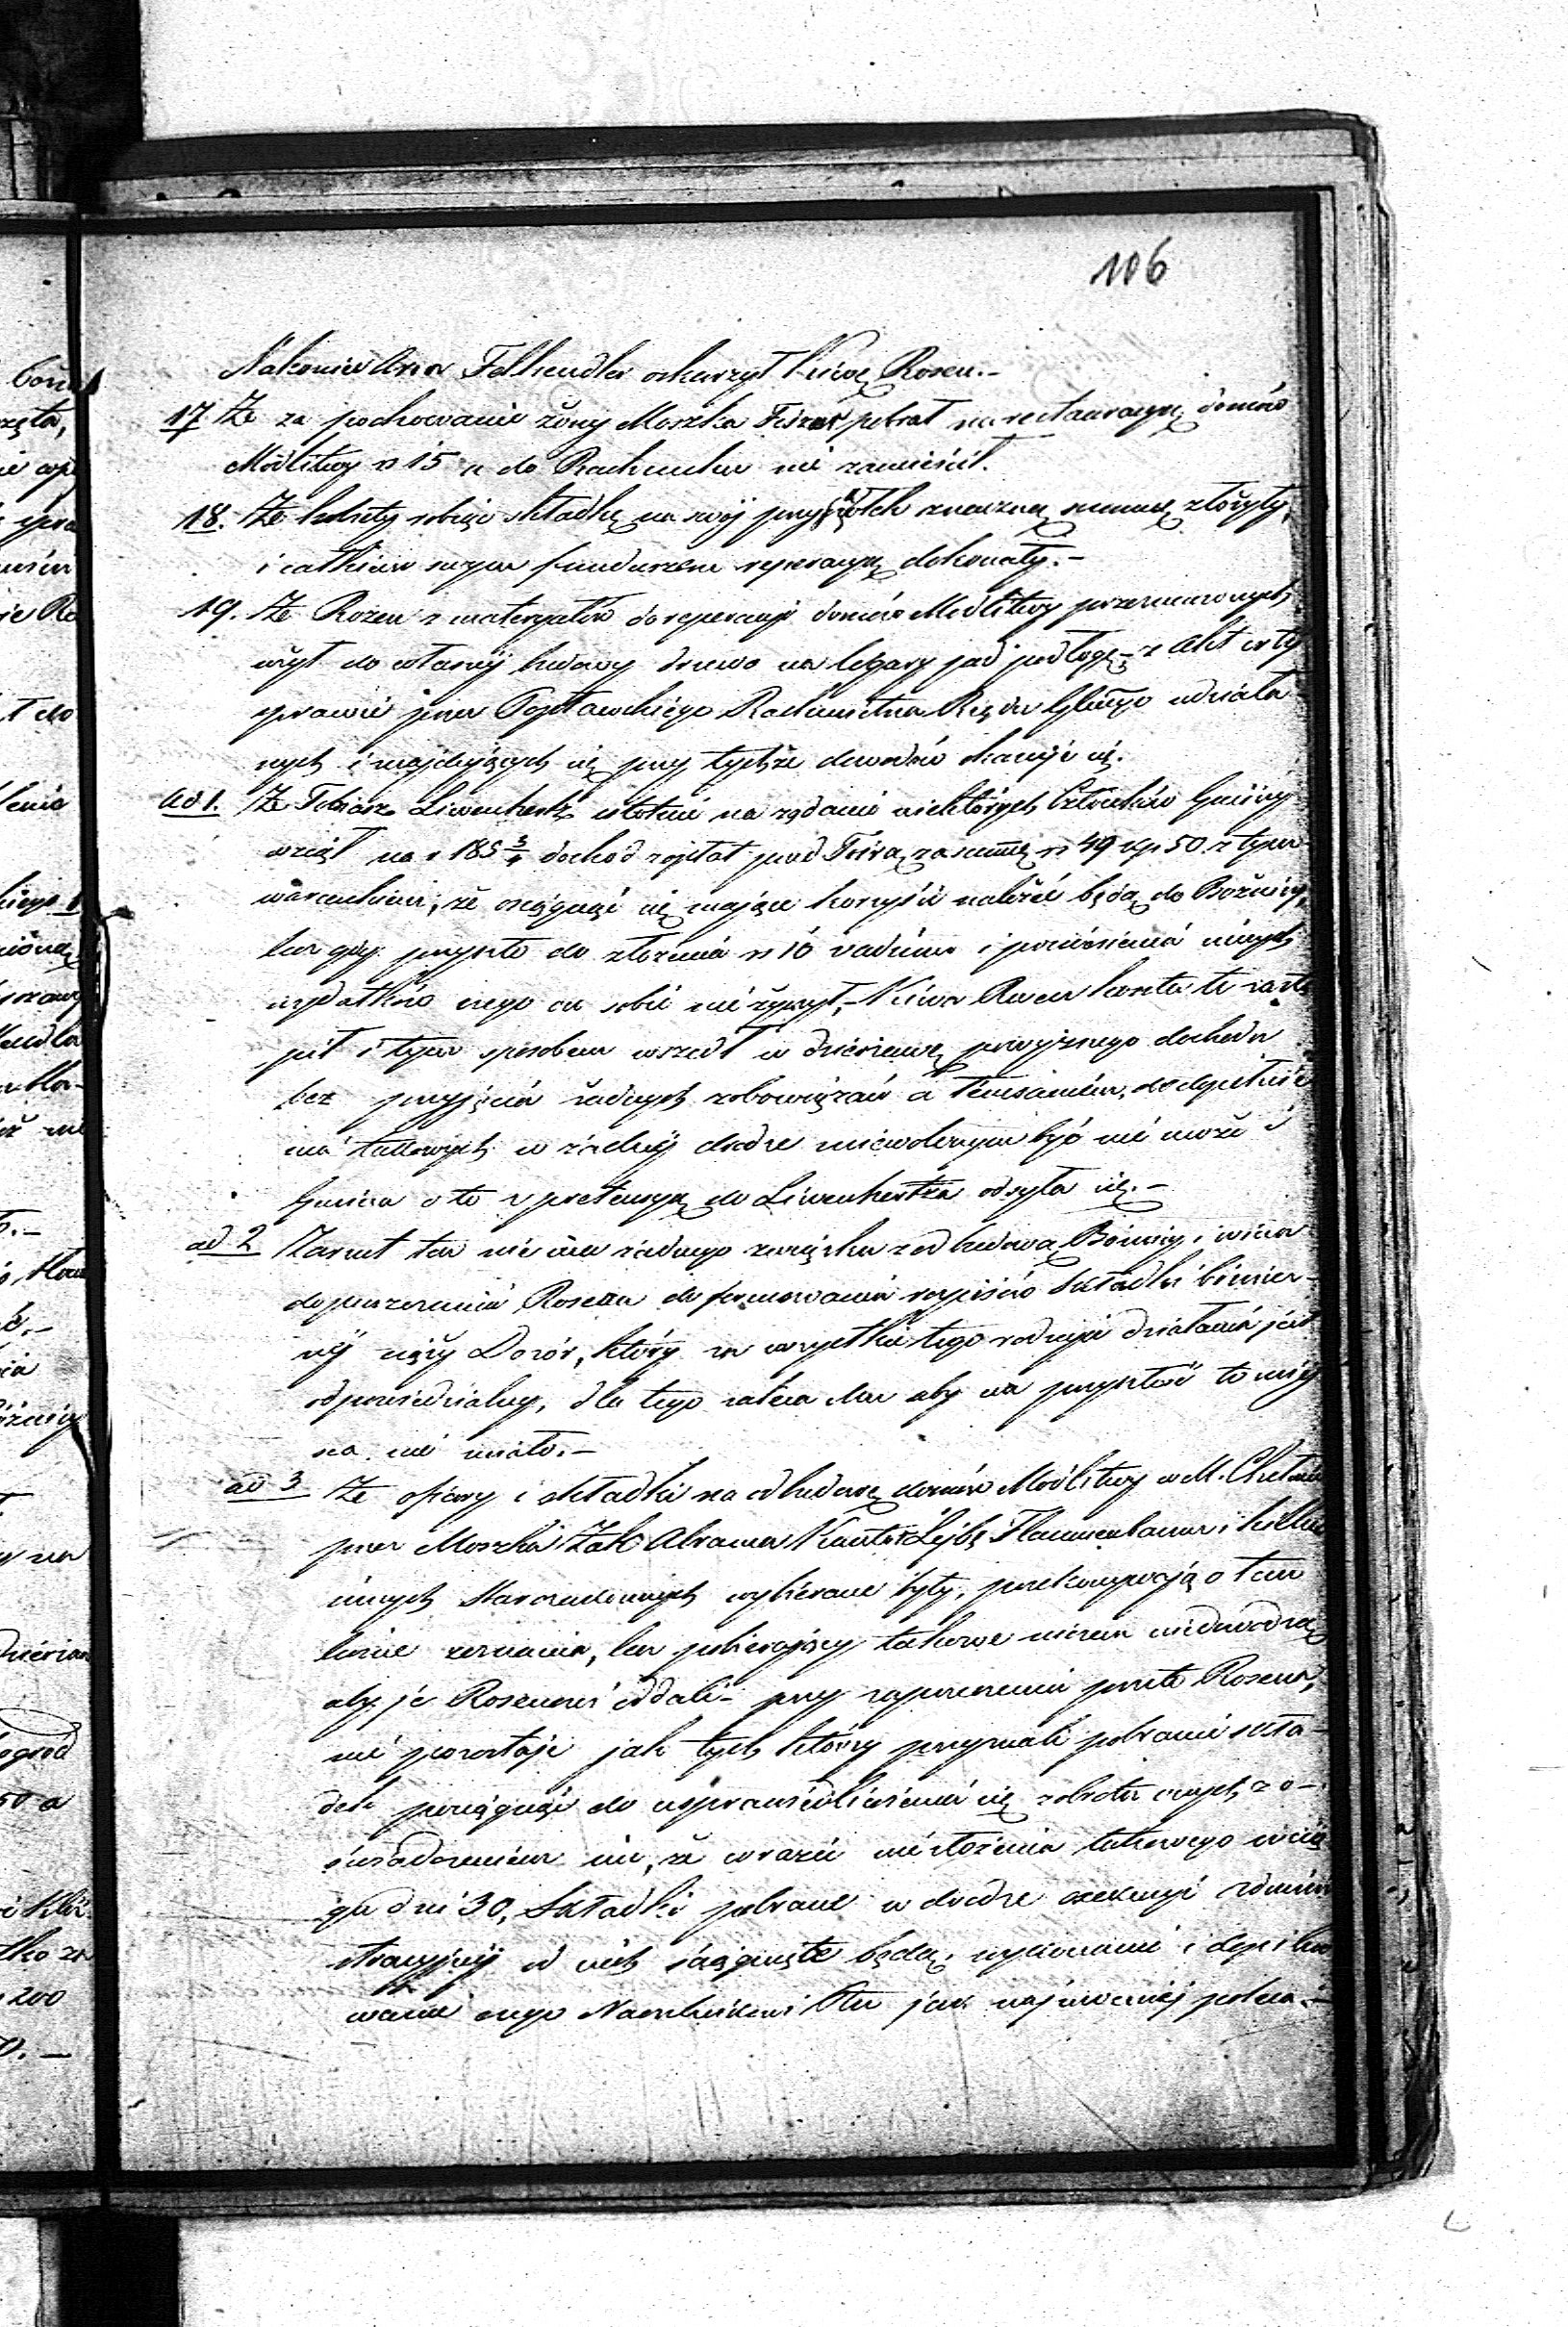 106
Nakoniec Felhendler oskarzył Kiwę Rosen.-
17. Że za pochowanie żony Moszka pobrał na restauracyę domów
Modlitwy rs 15 a do Rachunku nie zamieścił.
18. Że kobiety robiąc składkę na swój znaczną summę złożyły,
i całkiem swym funduszem reperacyę dokonały.-
19. Że Rozen z materyałów do reperacyi domów Modlitwy przeznaczonych
użył do własnej budowy drzewo na legary pod podłogę - z akt w tej
sprawie przez Rachmistrza Rządu udziała
nych i znajdujących się przy tychże dowodów okazuje się.
Ad 1. Że Tobiasz Liwenhertz istotnie na żądanie niektórych Członków Gminy
wziął na r 185 3/4 dochod z opłat pod Torą za summę rs 49 kop 50 z tym
warunkiem, że osiągnąć się mające korzyści należeć będą do Bożnicy,
lecz gdy przyszło do złożenia rs 10 vadium i poniesienia innych
wydatków czego on sobie nie życzył,- Kiwa Rosen koszta te zastą
pił i tym sposobem wszedł w dzierżawę powyższego dochodu
bez przyjęcia żadnych zobowiązań a temsamem, do dopełnie
nia takowych w żadnej drodze niewolonym być nie może i
Gmina o to z pretensyą do Liwenhertza odsyła się.-
ad. 2 Zarzut ten nie ma żadnego związku z odbudową Bóżnicy i wina
dopuszczenia Rosena do formowania rozpisów Składki bóżnicz-
néj ciąży Dozór, który za wszystkie tego rodzaju działania jest
odpowiedzialny, dla tego zaleca Mu aby na przyszłość to miej
sca nie miało.-
ad 3 Że ofiary i składki na odbudowę domów Modlitwy w M. Chełmie
przez Moszka Żak Abrama Kantor Lejbę Flamenbaum i kilku
innych Starozakonnych wybierane były, przekonywają o tem
liczne zeznania, lecz pobierający takowe niczem niedowodzą
aby je Rosenowi oddali - przy zaprzeczeniu przeto Rosena,
nie pozostaje jak tych którzy przyznali pobranie skła-
dek pociągnąć do usprawiedliwienia się z obrotu onych z o-
świadczeniem im, że w razie nie złożenia takowego w cią
gu dni 30, Składki pobrane w drodze exekucyi administ
stracyjnej od nich ściągnięte będą; wykonanie i dopilno
wanie czego Naczelnikowi Ptu jak najmocniej poleca.-